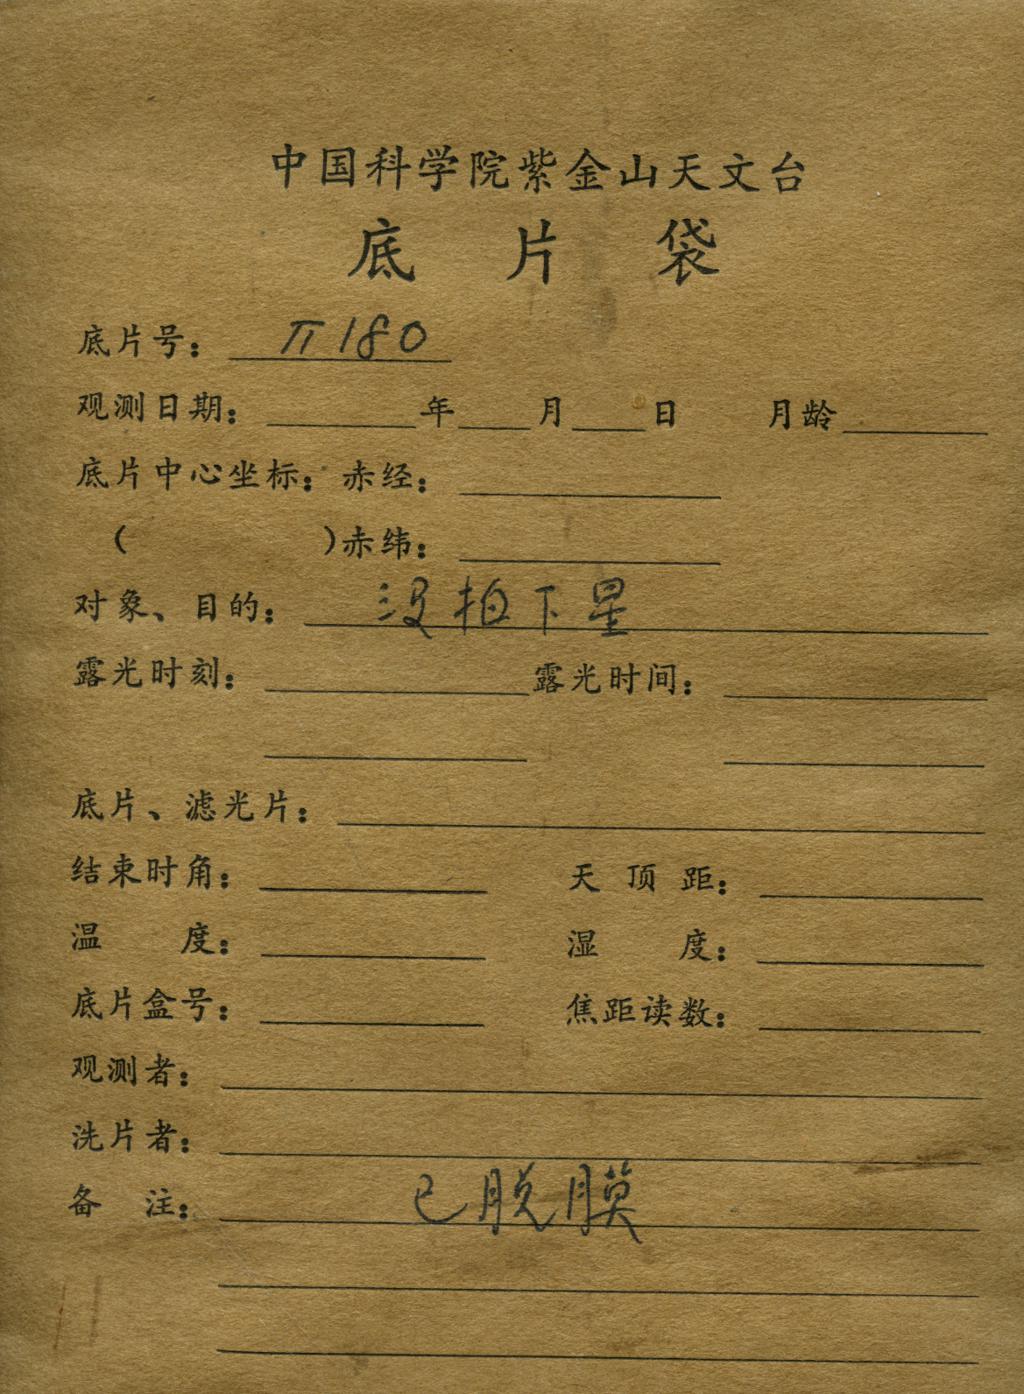 中国科学院紫金山天文台
底片袋
底片号：π180
观测日期：____年__月__日 月龄____
底片中心坐标：赤经：
（ ）赤纬：
对象、目的：没拍下星
露光时刻： 露光时间：
底片、滤光片：
结束时角： 天顶距：
温度： 湿度：
底片盒号： 焦距读数：
观测者：
洗片者：
备注：已脱膜